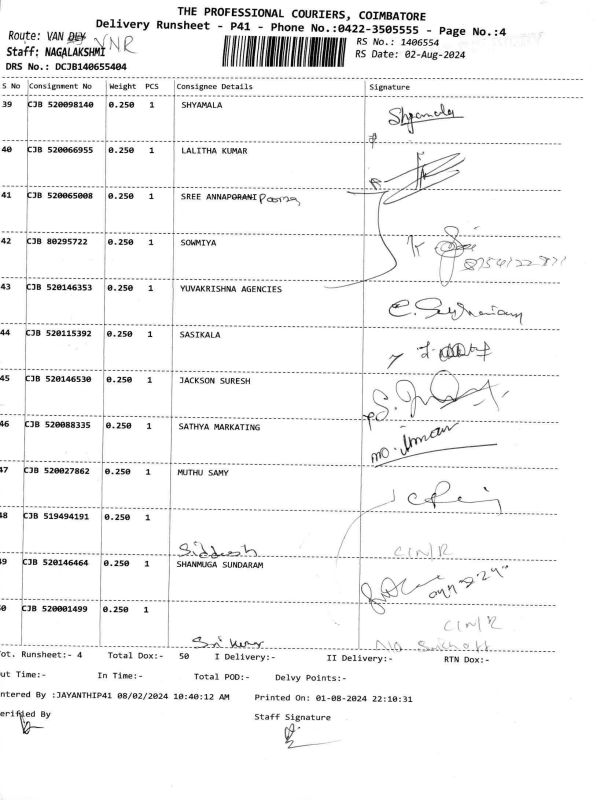 THE PROFESSIONAL COURIERS, COIMBATORE
Delivery Runsheet - P41 - Phone No.:0422-3505555 - Page No.:4
Route: VAN DEY VNR
RS No.: 1406554
Staff: NAGALAKSHMI
RS Date: 02-Aug-2024
DRS No.: DCJB140655404
S No Consignment No Weight PCS Consignee Details Signature
39 CJB 520098140 0.250 1 SHYAMALA Shyamala
40 CJB 520066955 0.250 1 LALITHA KUMAR
41 CJB 520065008 0.250 1 SREE ANNAPORANI
42 CJB 80295722 0.250 1 SOWMIYA
43 CJB 520146353 0.250 1 YUVAKRISHNA AGENCIES
44 CJB 520115392 0.250 1 SASIKALA
45 CJB 520146530 0.250 1 JACKSON SURESH
46 CJB 520088335 0.250 1 SATHYA MARKATING
47 CJB 520027862 0.250 1 MUTHU SAMY
48 CJB 519494191 0.250 1
Siddesh C/N/R
49 CJB 520146464 0.250 1 SHANMUGA SUNDARAM
50 CJB 520001499 0.250 1 C/N/R
Tot. Runsheet:- 4 Total Dox:- 50 I Delivery:- II Delivery:- RTN Dox:-
Out Time:- In Time:- Total POD:- Delvy Points:-
Entered By :JAYANTHIP41 08/02/2024 10:40:12 AM Printed On: 01-08-2024 22:10:31
Verified By Staff Signature